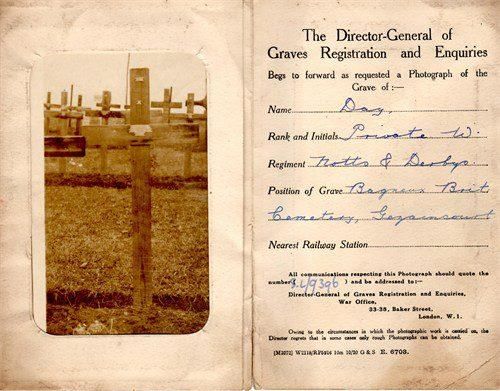 The Director-General of
Graves Registration and Enquiries
Begs to forward as requested a Photograph of the
Grave of :—
Name Day,
Rank and Initials Private W.
Regiment Notts & Derbys.
Position of Grave Bagneux Brit
Cemetery, Gezaincourt
Nearest Railway Station
All communications respecting this Photograph should quote the
number (3.L/9396) and be addressed to:—
Director-General of Graves Registration and Enquiries,
War Office,
33-38, Baker Street,
London, W.1.
Owing to the circumstances in which the photographic work is carried on, the
Director regrets that in some cases only rough Photographs can be obtained.
10/20 G & S E. 6703.